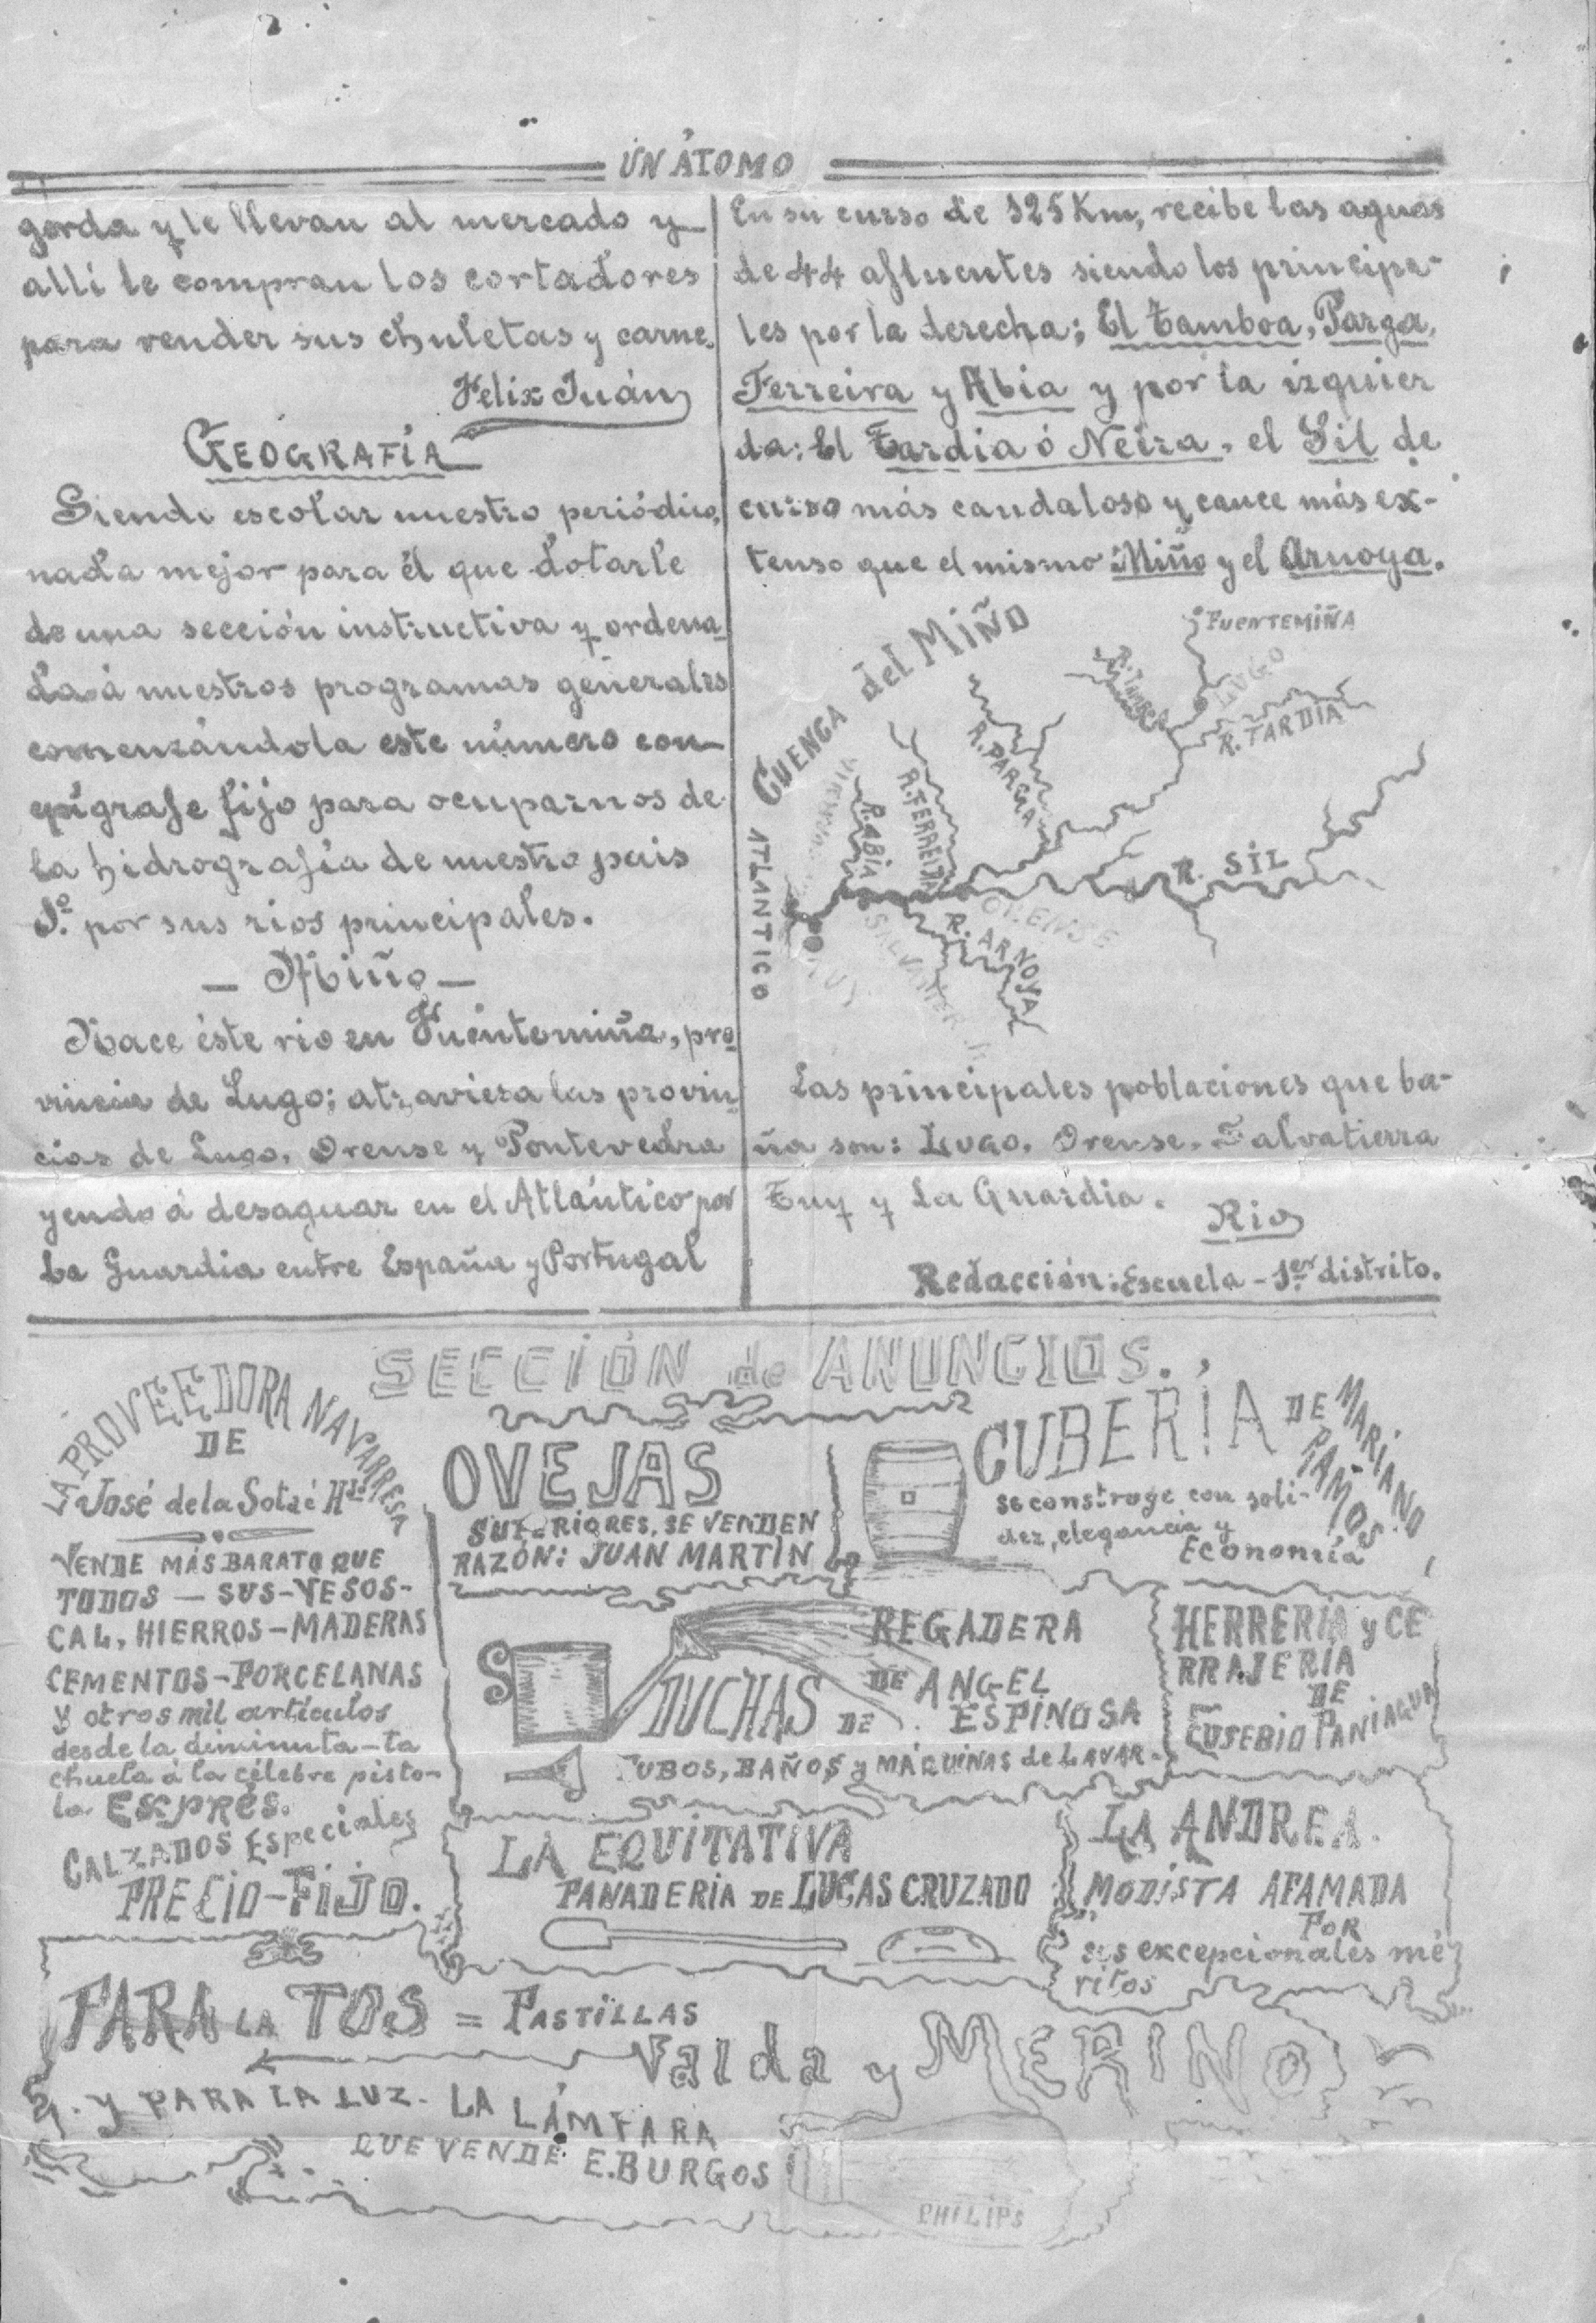 UN ÁTOMO
gorda y le llevan al mercado y
alli le compran los cortadores
para vender sus chuletas y carne.
Felix Juán
GEOGRAFÍA
Siendo escolar nuestro periódico,
nada mejor para él que dotarle
de una sección instructiva y ordena
da á nuestros programas generales
comenzándola este número con
epígrafe fijo para ocuparnos de
la hidrografía de nuestro pais
1º por sus rios principales.
— Miño —
Nace éste rio en Fuentemiña, pro
vincia de Lugo; atraviesa las provin
cias de Lugo, Orense y Pontevedra
yendo á desaguar en el Atlántico por
La Guardia entre España y Portugal
En su curso de 325 Km, recibe las aguas
de 44 afluentes siendo los principa-
les por la derecha; El Tamboa, Parga,
Ferreira y Abia y por la izquier
da: El Tardia ó Neira, el Sil de
curso más caudaloso y cauce más ex-
tenso que el mismo Miño y el Arnoya.
CUENCA del MIÑO
FUENTEMIÑA
LUGO
R. TAMBOA
R. TARDIA
R. PARGA
R. FERREIRA
R. ABIA
R. SIL
ORENSE
R. ARNOYA
ATLANTICO
TUY
Las principales poblaciones que ba-
ña son: Lugo, Orense, Salvatierra
Tuy y La Guardia.
Rio
Redacción: Escuela - 1er distrito.
SECCIÓN de ANUNCIOS.
LA PROVEEDORA NAVARRESA
DE
José de la Sota é Hº
VENDE MÁS BARATO QUE
TODOS — SUS - YESOS -
CAL, HIERROS - MADERAS
CEMENTOS - PORCELANAS
y otros mil artículos
desde la diminuta - ta
chuela á la célebre pisto-
la EXPRÉS.
CALZADOS Especiales
PRECIO - FIJO.
OVEJAS
SUPERIORES, SE VENDEN
RAZÓN: JUAN MARTIN
CUBERIA DE MARIANO RAMOS
se construye con soli-
dez, elegancia y
Economía
REGADERAS
DUCHAS DE
DE ANGEL
ESPINOSA
TUBOS, BAÑOS y MÁQUINAS de LAVAR -
HERRERIA y CE
RRAJERIA
DE
EUSEBIO PANIAGUA
LA EQUITATIVA
PANADERIA DE LUCAS CRUZADO
LA ANDREA.
MODISTA AFAMADA
POR
sus excepcionales mé
ritos
PARA LA TOS = PASTILLAS
Valda y MERINO
Y PARA LA LUZ - LA LÁMPARA
QUE VENDE E. BURGOS
PHILIPS